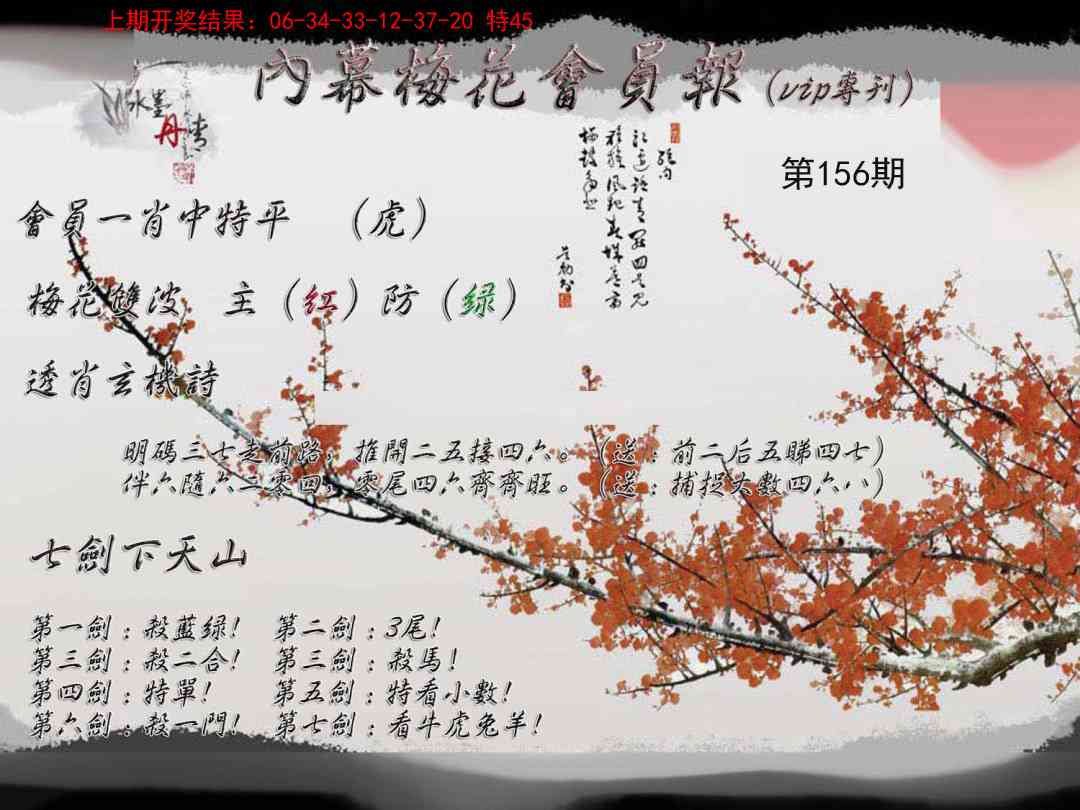 上期开奖结果：06-34-33-12-37-20 特45
內幕梅花會員報（vip專刊）
水墨
丹青
第156期
會員一肖中特平 （虎）
梅花雙波 主（红）防（绿）
透肖玄機詩
明碼三七走前路，推開二五接四六。（送：前二后五睇四七）
伴六隨六二零四，零尾四六齊齊旺。（送：捕捉大數四六八）
七劍下天山
第一劍：殺藍绿！ 第二劍：3尾！
第三劍：殺二合！ 第三劍：殺馬！
第四劍：特單！ 第五劍：特看小數！
第六劍：殺一門！ 第七劍：看牛虎兔羊！